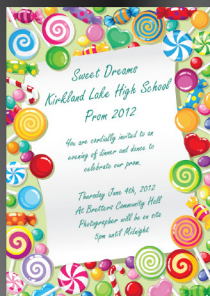 Sweet Dreams
Kirkland Lake High School
Prom 2012
You are cordially invited to an
evening of dinner and dance to
celebrate our prom.
Thursday June 4th, 2012
At Bretters Community Hall
Photographer will be on site
5pm until Midnight